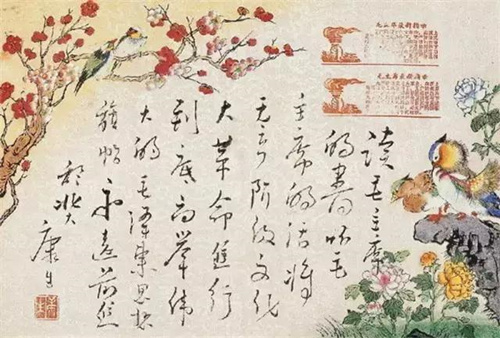 读毛主席
的书听毛
主席的话将
无产阶级文化
大革命进行
到底高举伟
大的毛泽东思想
旗帜永远前进
康生